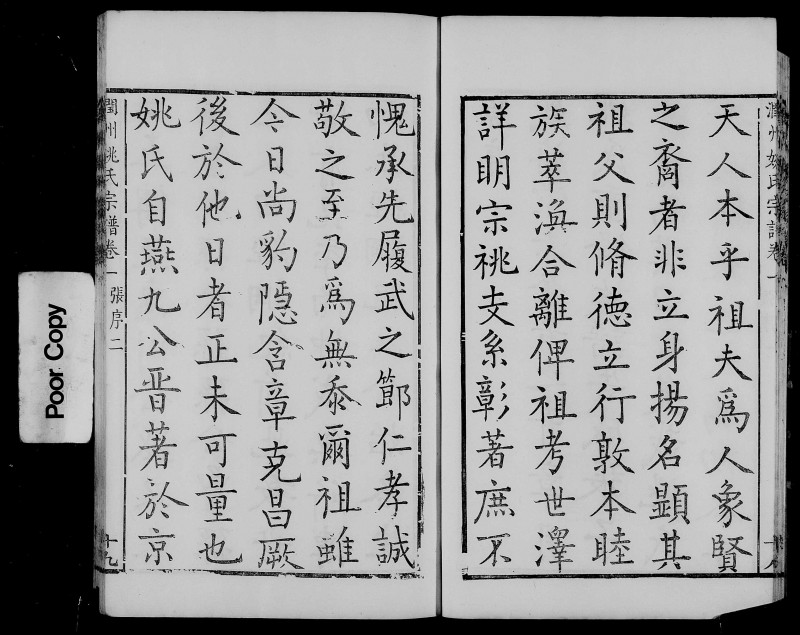 潤州姚氏宗譜卷一
十八
天人本乎祖夫為人象賢
之裔者非立身揚名顯其
祖父則脩德立行敦本睦
族萃渙合離俾祖考世澤
詳明宗祧支系彰著庶不
愧承先履武之節仁孝誠
敬之至乃爲無忝爾祖雖
今日尚豹隱含章克昌厥
後於他日者正未可量也
姚氏自燕九公晋著於京
閏州姚氏宗譜卷一 張序二
十九
Poor Copy